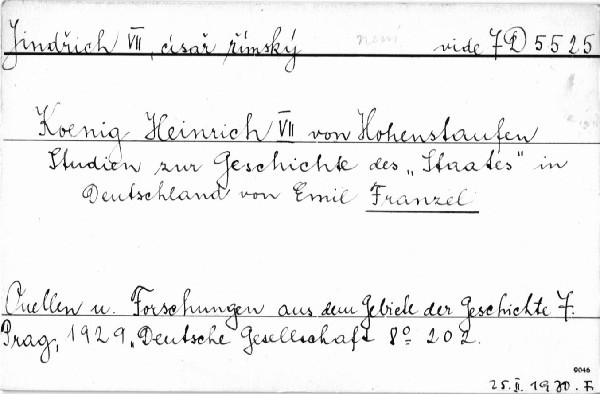 Jindřich VII, císař římský není vide 7D 5525
Koenig Heinrich VII von Hohenstaufen
Studien zur Geschichte des „Staates" in
Deutschland von Emil Franzel
Quellen u. Forschungen aus dem Gebiete der Geschichte 7.
Prag, 1929. Deutsche Gesellschaft 8° 202.
0046
25.II.1930. F